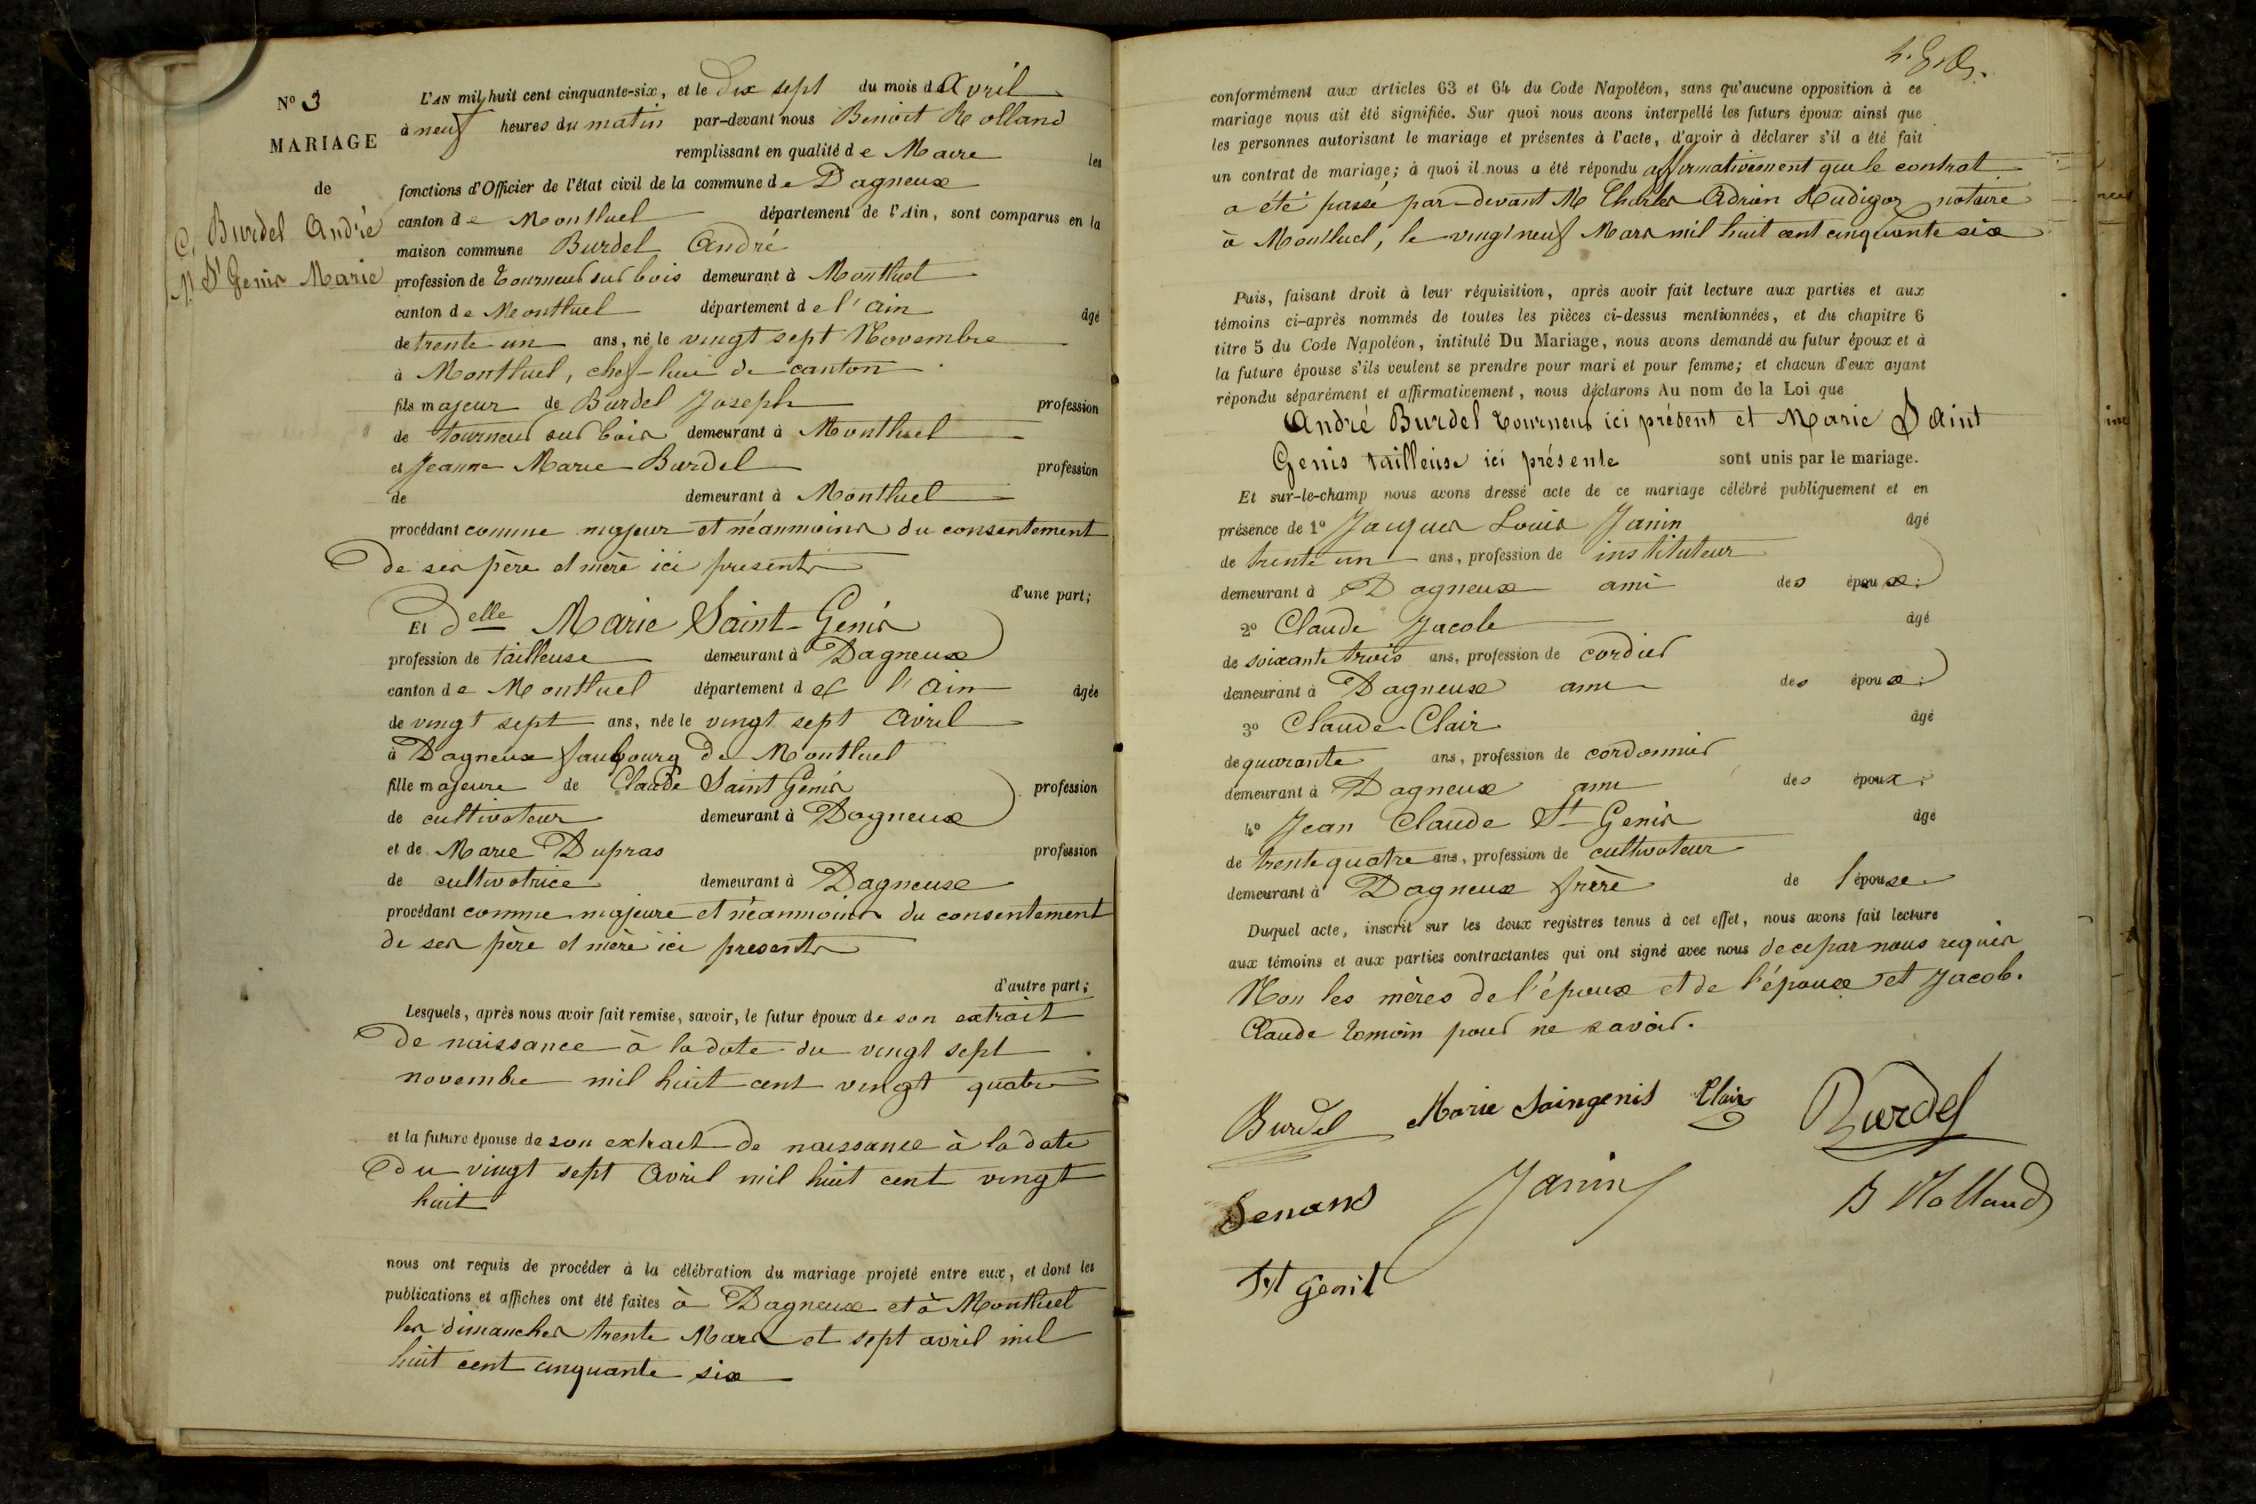 N° 3
MARIAGE
de
Burdel André
&
St Genis Marie
L'AN mil huit cent cinquante-six, et le Dix sept du mois d'Avril
à neuf heures du matin par-devant nous Benoit Rolland
remplissant en qualité de Maire les
fonctions d'Officier de l'état civil de la commune de Dagneux
canton de Montluel département de l'Ain, sont comparus en la
maison commune Burdel André
profession de tourneur sur bois demeurant à Montluel
canton de Montluel département de l'Ain âgé
de trente un ans, né le vingt sept Novembre
à Montluel, chef-lieu de canton
fils majeur de Burdel Joseph profession
de tourneur sur bois demeurant à Montluel
et Jeanne Marie Burdel profession
de demeurant à Montluel
procédant comme majeur et néanmoins du consentement
de ses père et mère ici presents
d'une part;
Et Delle Marie Saint-Genis
profession de tailleuse demeurant à Dagneux
canton de Montluel département de l'Ain âgée
de vingt sept ans, née le vingt sept Avril
à Dagneux faubourg de Montluel
fille majeure de Claude Saint Genis profession
de cultivateur demeurant à Dagneux
et de Marie Dupras profession
de cultivatrice demeurant à Dagneux
procédant comme majeure et néanmoins du consentement
de ses père et mère ici presents
d'autre part;
Lesquels, après nous avoir fait remise, savoir, le futur époux de son extrait
de naissance à la date du vingt sept
novembre mil huit cent vingt quatre
et la future épouse de son extrait de naissance à la date
du vingt sept Avril mil huit cent vingt
huit
nous ont requis de procéder à la célébration du mariage projeté entre eux, et dont les
publications et affiches ont été faites à Dagneux et à Montluel
les dimanches trente Mars et sept avril mil
huit cent cinquante six
conformément aux articles 63 et 64 du Code Napoléon, sans qu'aucune opposition à ce
mariage nous ait été signifiée. Sur quoi nous avons interpellé les futurs époux ainsi que
les personnes autorisant le mariage et présentes à l'acte, d'avoir à déclarer s'il a été fait
un contrat de mariage; à quoi il nous a été répondu affirmativement que le contrat
a été passé par-devant Me Charles Adrien Rudigoz notaire
à Montluel, le vingt neuf Mars mil huit cent cinquante six
Puis, faisant droit à leur réquisition, après avoir fait lecture aux parties et aux
témoins ci-après nommés de toutes les pièces ci-dessus mentionnées, et du chapitre 6
titre 5 du Code Napoléon, intitulé Du Mariage, nous avons demandé au futur époux et à
la future épouse s'ils veulent se prendre pour mari et pour femme; et chacun d'eux ayant
répondu séparément et affirmativement, nous déclarons Au nom de la Loi que
André Burdel tourneur ici présent et Marie Saint
Genis tailleuse ici présente sont unis par le mariage.
Et sur-le-champ nous avons dressé acte de ce mariage célébré publiquement et en
présence de 1° Jacques Louis Janin âgé
de trente un ans, profession de instituteur
demeurant à Dagneux ami des époux;
2° Claude Jacob âgé
de soixante trois ans, profession de cordier
demeurant à Dagneux ami des époux;
3° Claude Clair âgé
de quarante ans, profession de cordonnier
demeurant à Dagneux ami des époux;
4° Jean Claude St Genis âgé
de trente quatre ans, profession de cultivateur
demeurant à Dagneux frère de l'épouse
Duquel acte, inscrit sur les doux registres tenus à cet effet, nous avons fait lecture
aux témoins et aux parties contractantes qui ont signé avec nous de ce par nous requis
Non les mères de l'époux et de l'épouse et Jacob.
Claude temoin pour ne savoir.
Burdel Marie Saingenis Clair Burdel
Janin B Rolland
St genit